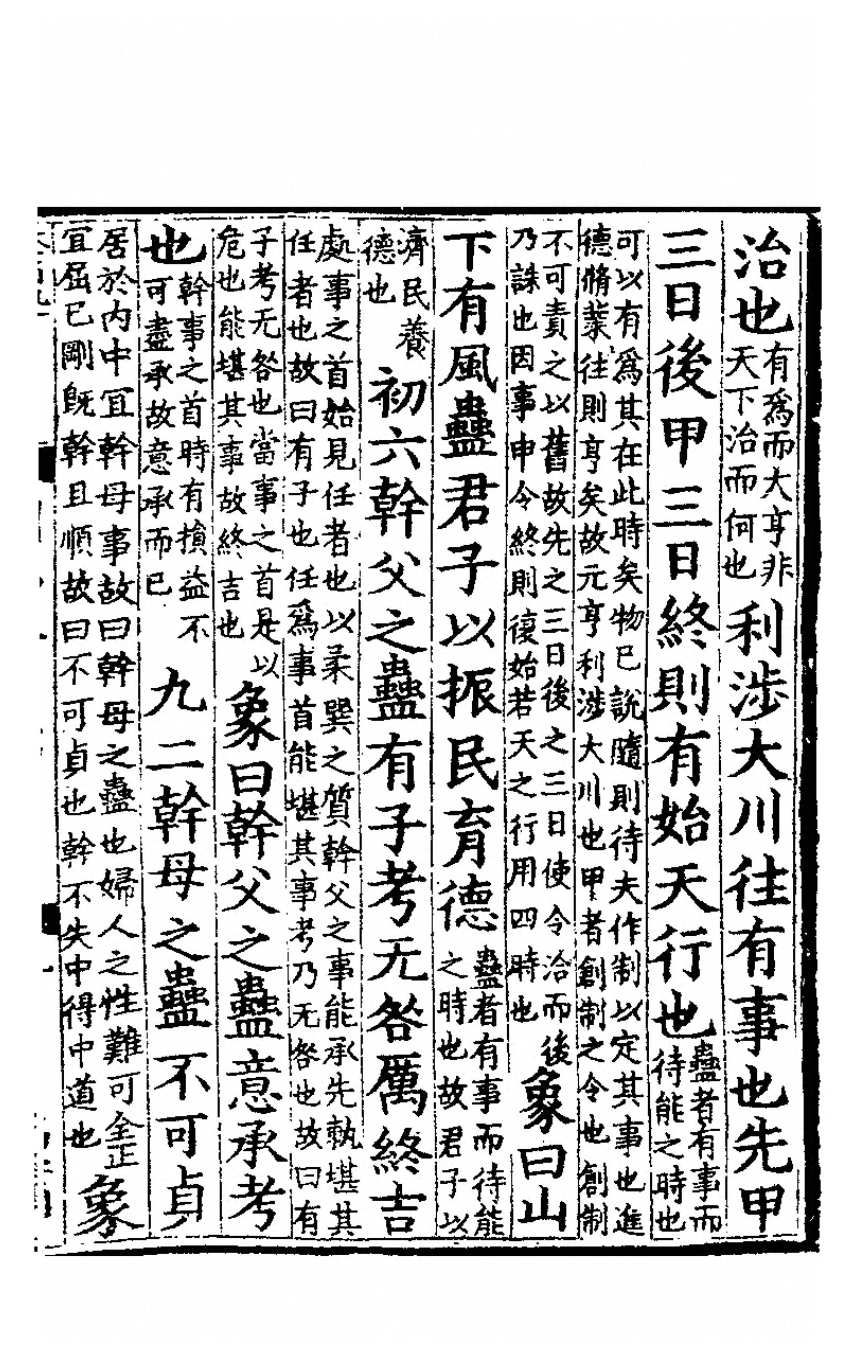 治也有爲而大亨非天下治而何也利涉大川往有事也先甲
三日後甲三日終則有始天行也蠱者有事而待能之時也
可以有爲其在此時矣物已說隨則待夫作制以定其事也進
德脩業往則亨矣故元亨利涉大川也甲者創制之令也創制
不可責之以舊故先之三日後之三日使令洽而後乃誅也因事申令終則復始若天之行用四時也象曰山
下有風蠱君子以振民育德蠱者有事而待能之時也故君子以
濟民養德也初六幹父之蠱有子考无咎厲終吉
處事之首始見任者也以柔巽之質幹父之事能承先軌堪其
任者也故曰有子也任爲事首能堪其事考乃无咎也故曰有
子考无咎也當事之首是以危也能堪其事故終吉也象曰幹父之蠱意承考
也幹事之首時有損益不可盡承故意承而已九二幹母之蠱不可貞
居於内中宜幹母事故曰幹母之蠱也婦人之性難可全正
宜屈已剛旣幹且順故曰不可貞也幹不失中得中道也象